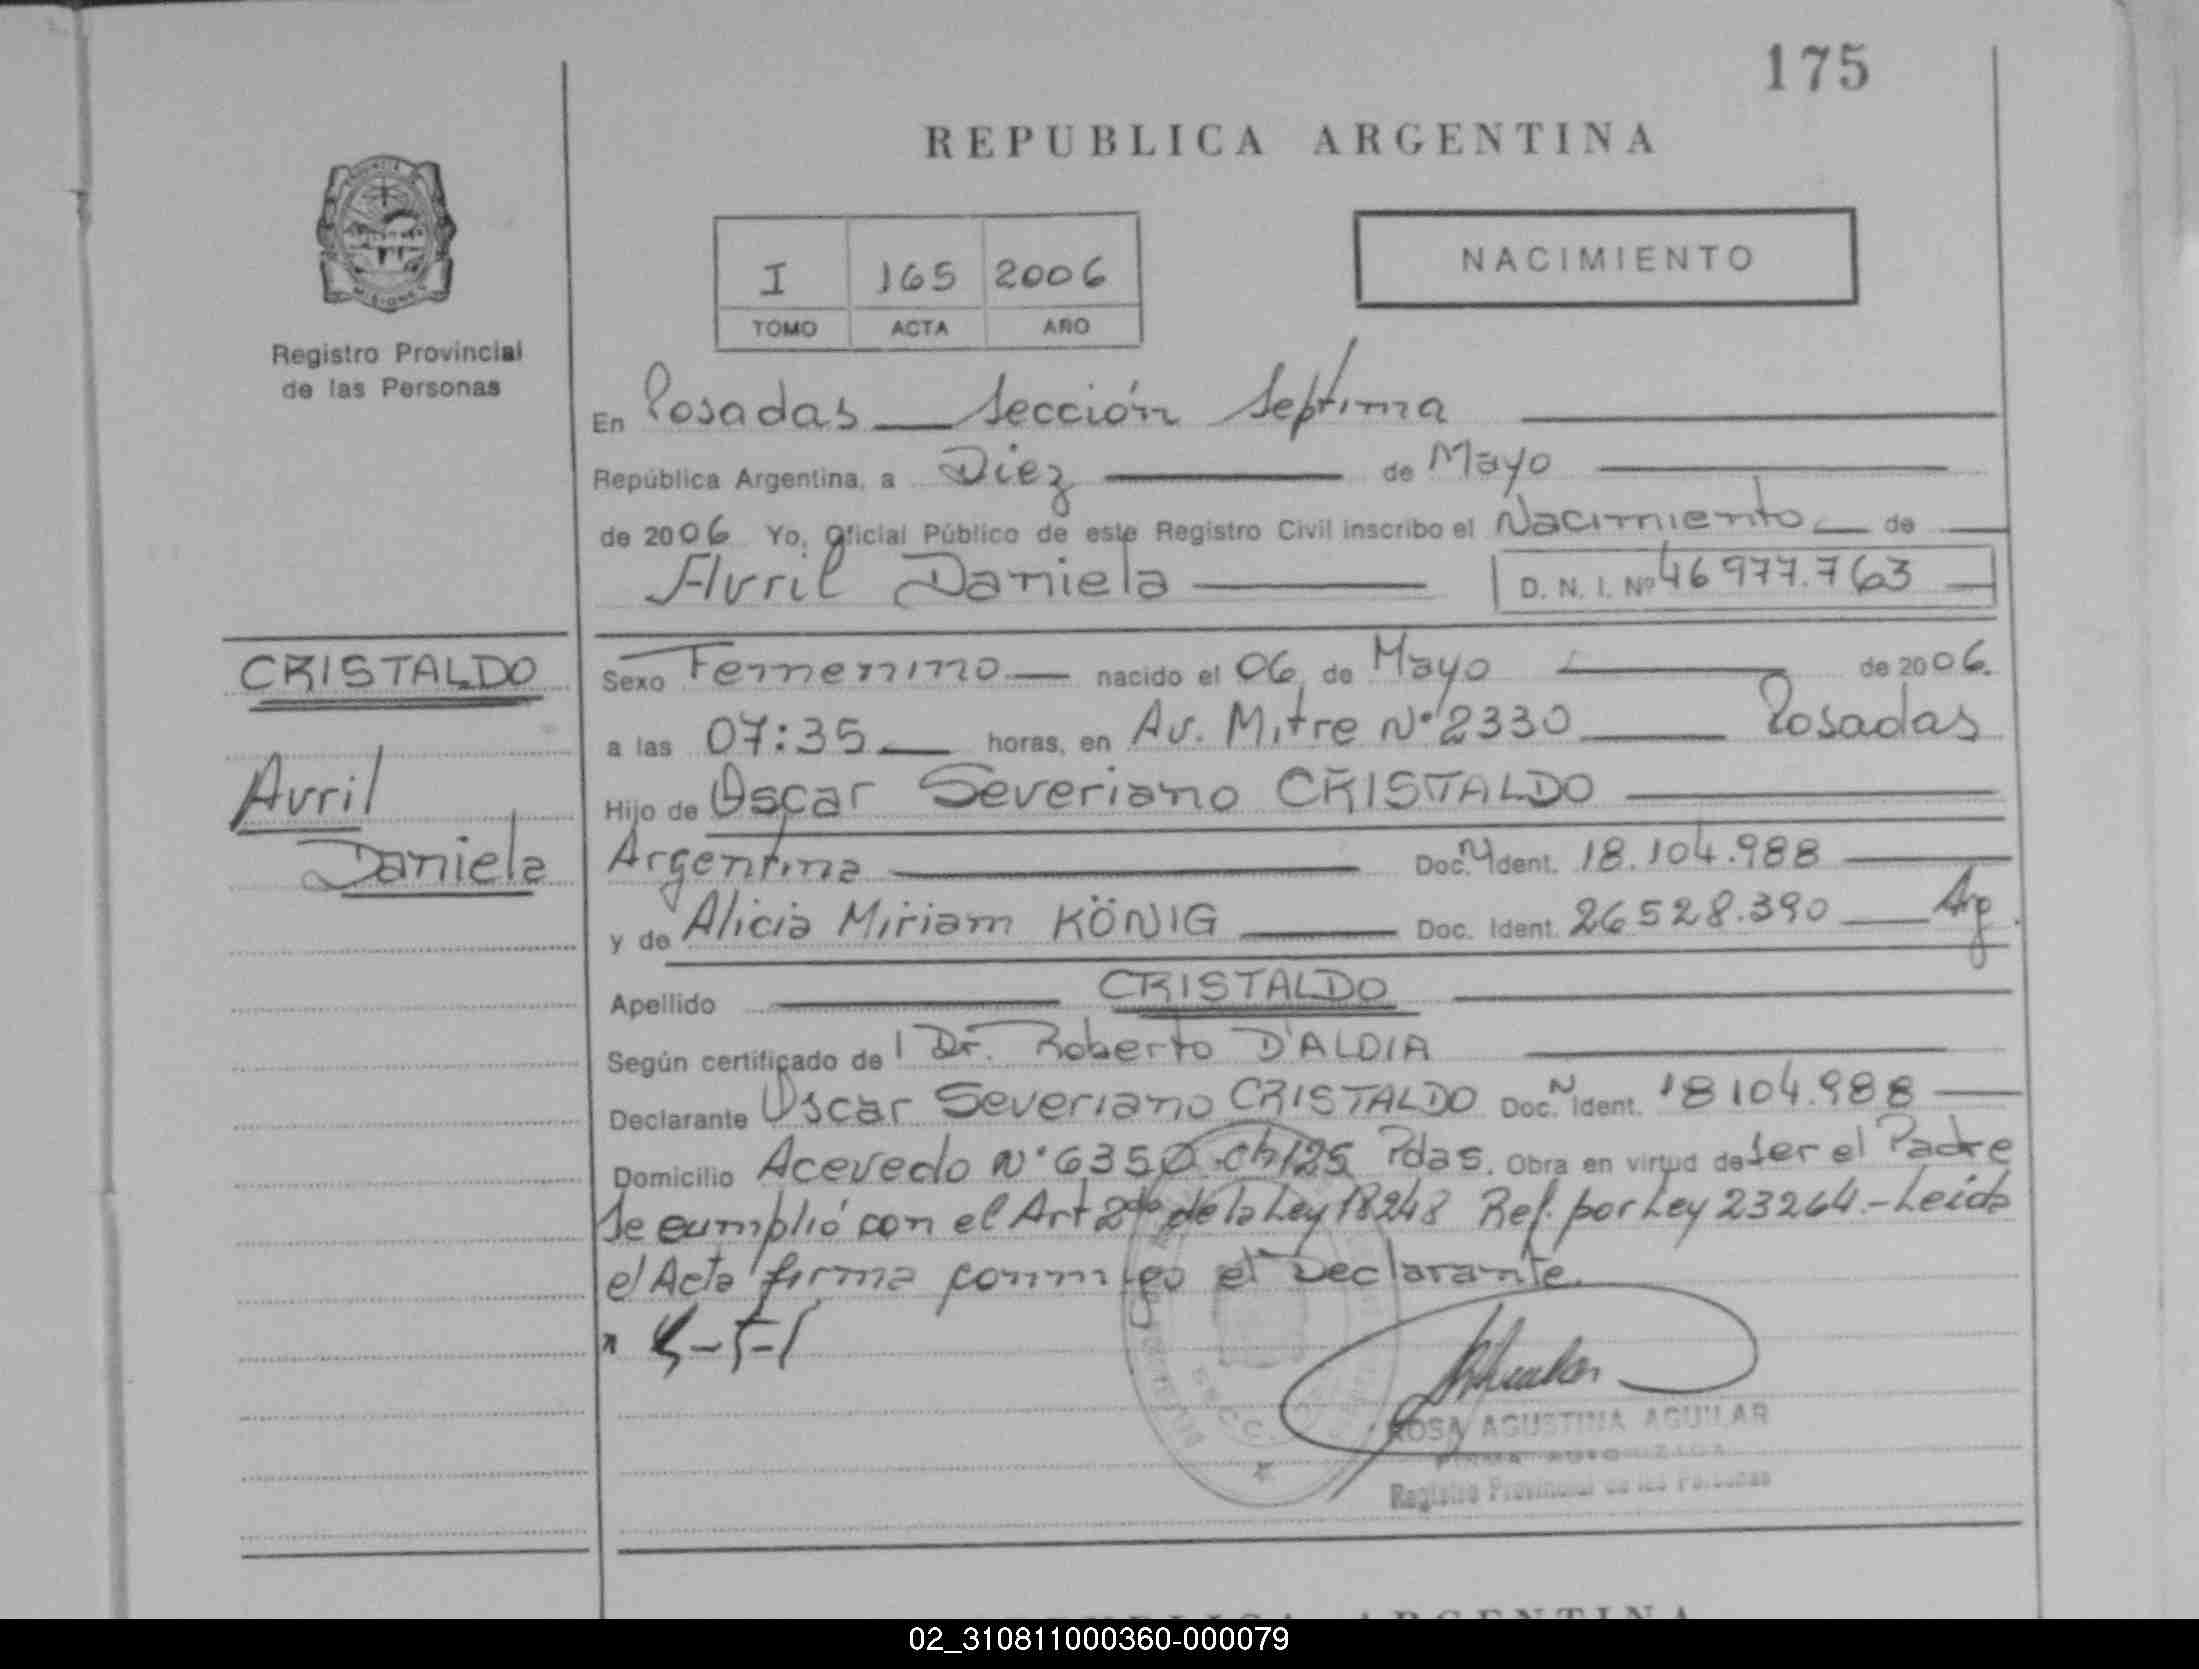 175
REPUBLICA ARGENTINA
NACIMIENTO
I 165 2006
TOMO ACTA AÑO
Registro Provincial
de las Personas
En Posadas Sección Septima
República Argentina, a Diez de Mayo
de 2006 Yo, Oficial Público de este Registro Civil inscribo el Nacimiento de
Avril Daniela D. N. I. Nº 46977.763
CRISTALDO
Avril
Daniela
Sexo Femenino nacido el 06 de Mayo de 2006.
a las 07:35 horas, en Av. Mitre Nº 2330 Posadas
Hijo de Oscar Severiano CRISTALDO
Argentina Doc. N Ident. 18.104.988
y de Alicia Miriam KÖNIG Doc. Ident. 26528.390 Arg.
Apellido CRISTALDO
Según certificado de l Dr. Roberto D'ALDIA
Declarante Oscar Severiano CRISTALDO Doc. N Ident. 18104.988
Domicilio Acevedo Nº 6350 ch 125 Pdas. Obra en virtud de ser el Padre
Se cumplió con el Art 2do de la Ley 18248 Ref. por Ley 23264.- Leída
el Acta firma conmigo el Declarante.
ROSA AGUSTINA AGUILAR
FIRMA AUTORIZADA
Registro Provincial de las Personas
REPUBLICA ARGENTINA
02_310811000360-000079